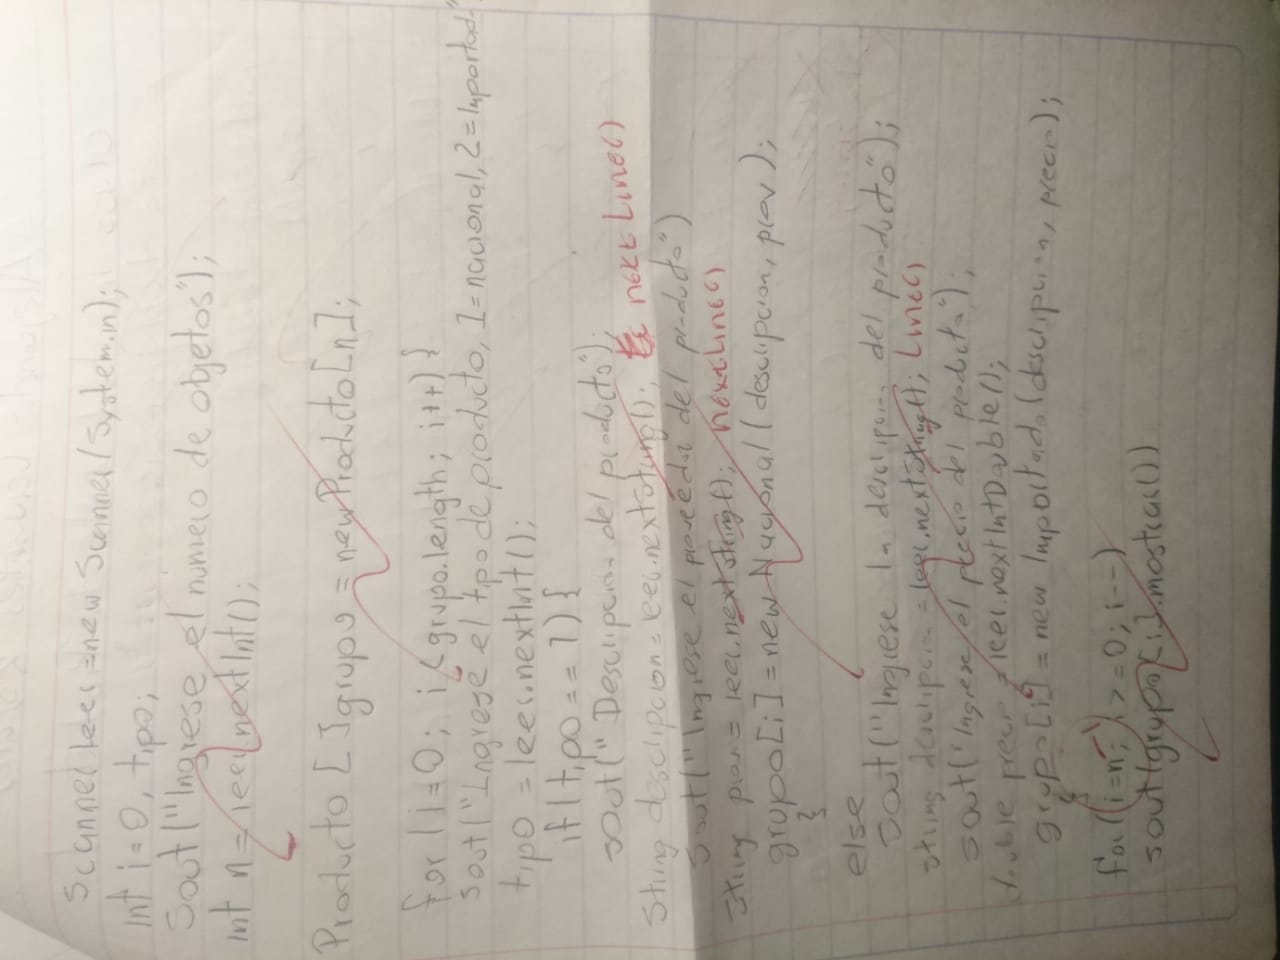 Scanner leer = new Scanner(System.in);
int i=0, tipo;
Sout("Ingrese el numero de objetos");
int n= leer.nextInt();
Producto []grupo = new Producto[n];
for (i=0; i<grupo.length; i++) {
sout("Ingrese el tipo de producto, 1=nacional, 2=Importad
tipo = leer.nextInt();
if(tipo == 1) {
sout("Descripcion del producto");
String descripcion = leer.nextString(); nextLine()
Sout("Ingrese el proveedor del producto")
String prov = leer.nextString(); nextLine()
grupo[i] = new Nacional(descripcion, prov);
}
else
sout("Ingrese la descripcion del producto");
string descripcion = leer.nextString(); Line()
sout("Ingrese el precio del producto");
double precio = leer.nextIntDouble();
grupo[i] = new Importado(descripcion, precio);
}
for(i=n; i>=0; i--)
sout(grupo[i].mostrar())